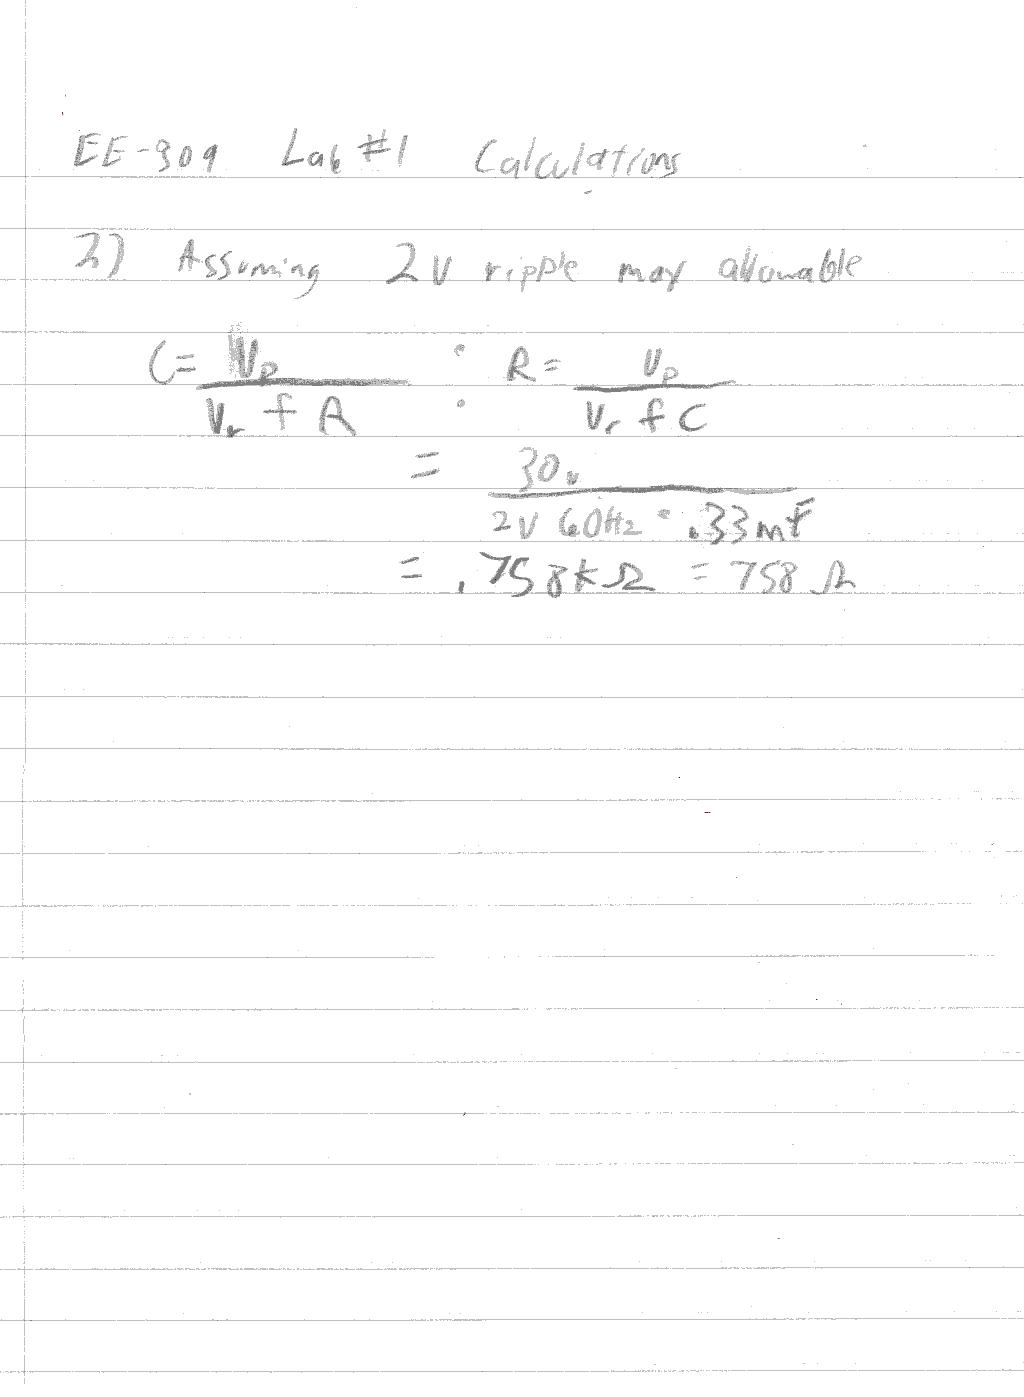 EE-309 Lab #1 Calculations
2) Assuming 2V ripple max allowable
C = Vp / Vr f R : R = Vp / Vr f C
= 30v / 2V 60Hz · .33mF
= .758kΩ = 758 Ω